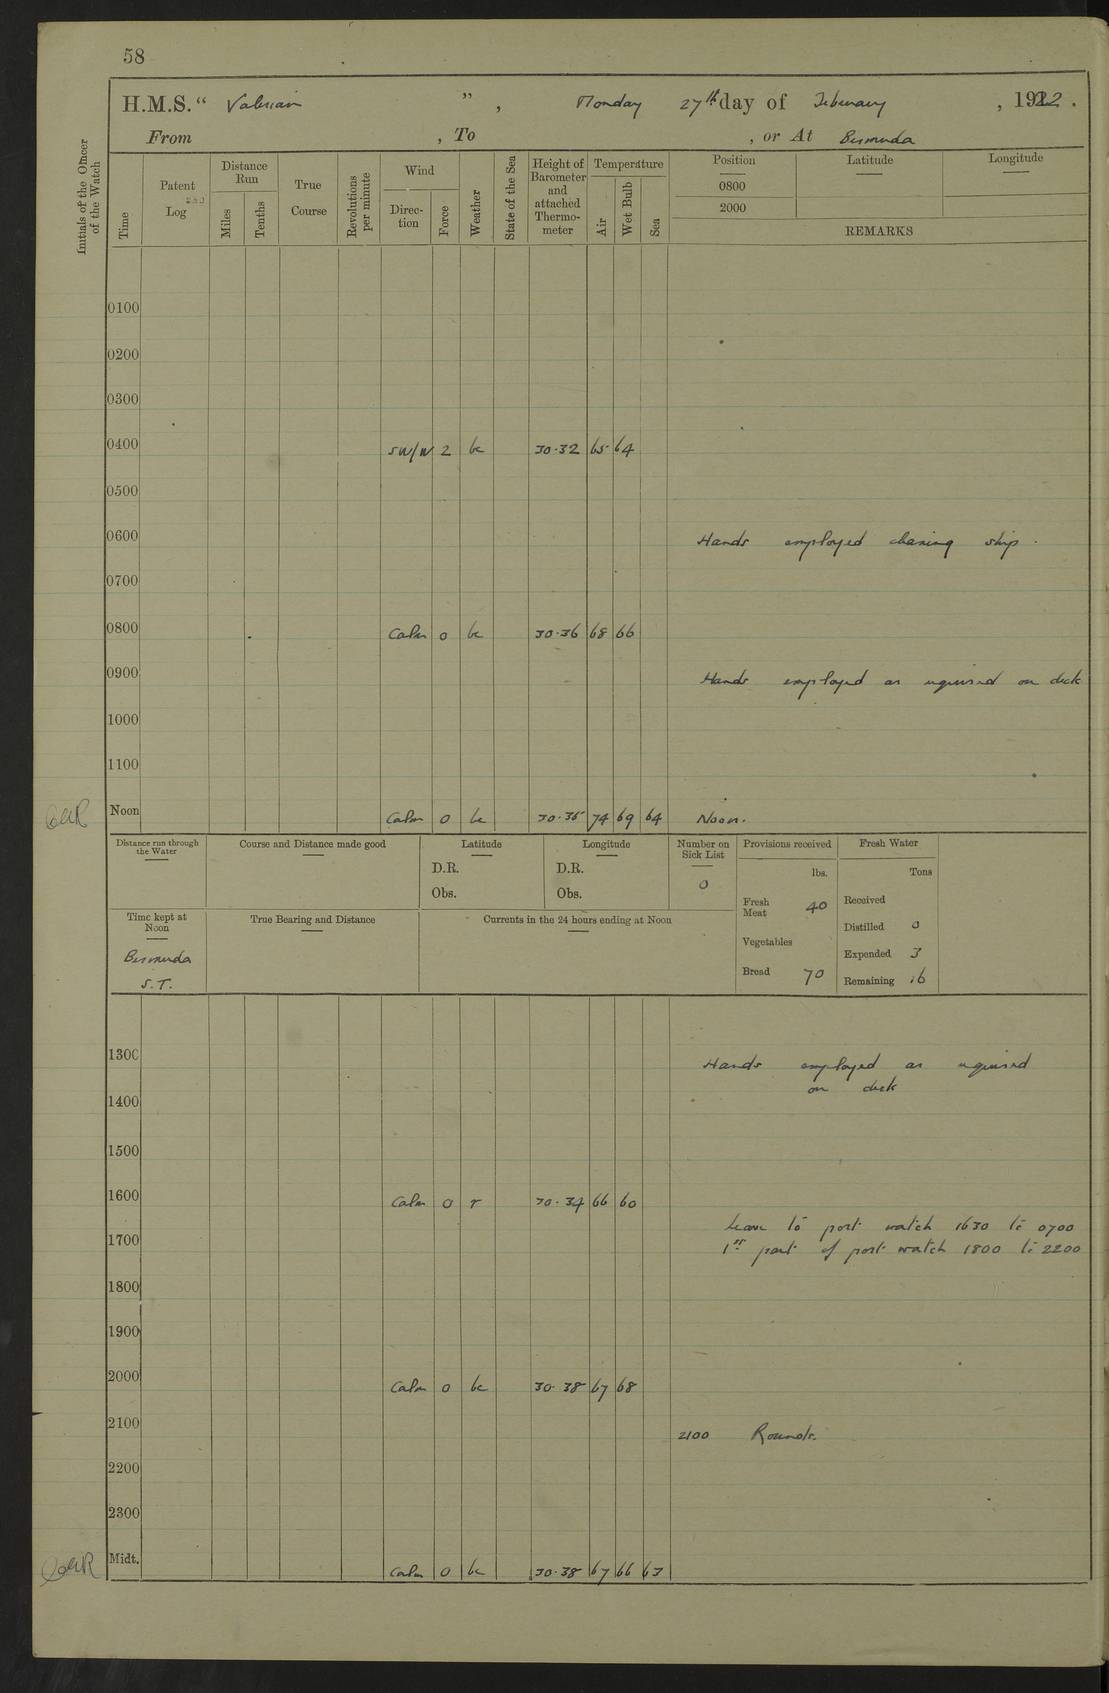 58
H.M.S. “ Valerian ” , Monday 27th day of February , 1922 .
From , To , or At Bermuda
Initials of the Officer of the Watch
Time
Patent Log
Distance Run
Miles
Tenths
True Course
Revolutions per minute
Wind
Direction
Force
Weather
State of the Sea
Height of Barometer and attached Thermometer
Temperature
Air
Wet Bulb
Sea
Position Latitude Longitude
0800
2000
REMARKS
0100
0200
0300
0400 SW/W 2 bc 30.32 65 64
0500
0600 Hands employed cleaning ship.
0700
0800 Calm 0 bc 30.36 68 66
0900 Hands employed as required on deck
1000
1100
Noon Calm 0 bc 30.35 74 69 64 Noon.
Distance run through the Water
Course and Distance made good
Latitude
D.R.
Obs.
Longitude
D.R.
Obs.
Number on Sick List
0
Provisions received
lbs.
Fresh Meat 40
Vegetables
Bread 70
Fresh Water
Tons
Received
Distilled 0
Expended 3
Remaining 16
Time kept at Noon
Bermuda
S.T.
True Bearing and Distance
Currents in the 24 hours ending at Noon
1300 Hands employed as required
on deck
1400
1500
1600 Calm 0 r 30.34 66 60
Leave to port watch 1630 to 0700
1st part of port watch 1800 to 2200
1700
1800
1900
2000 Calm 0 bc 30.38 67 68
2100 2100 Rounds.
2200
2300
Midt. Calm 0 bc 30.38 67 66 63